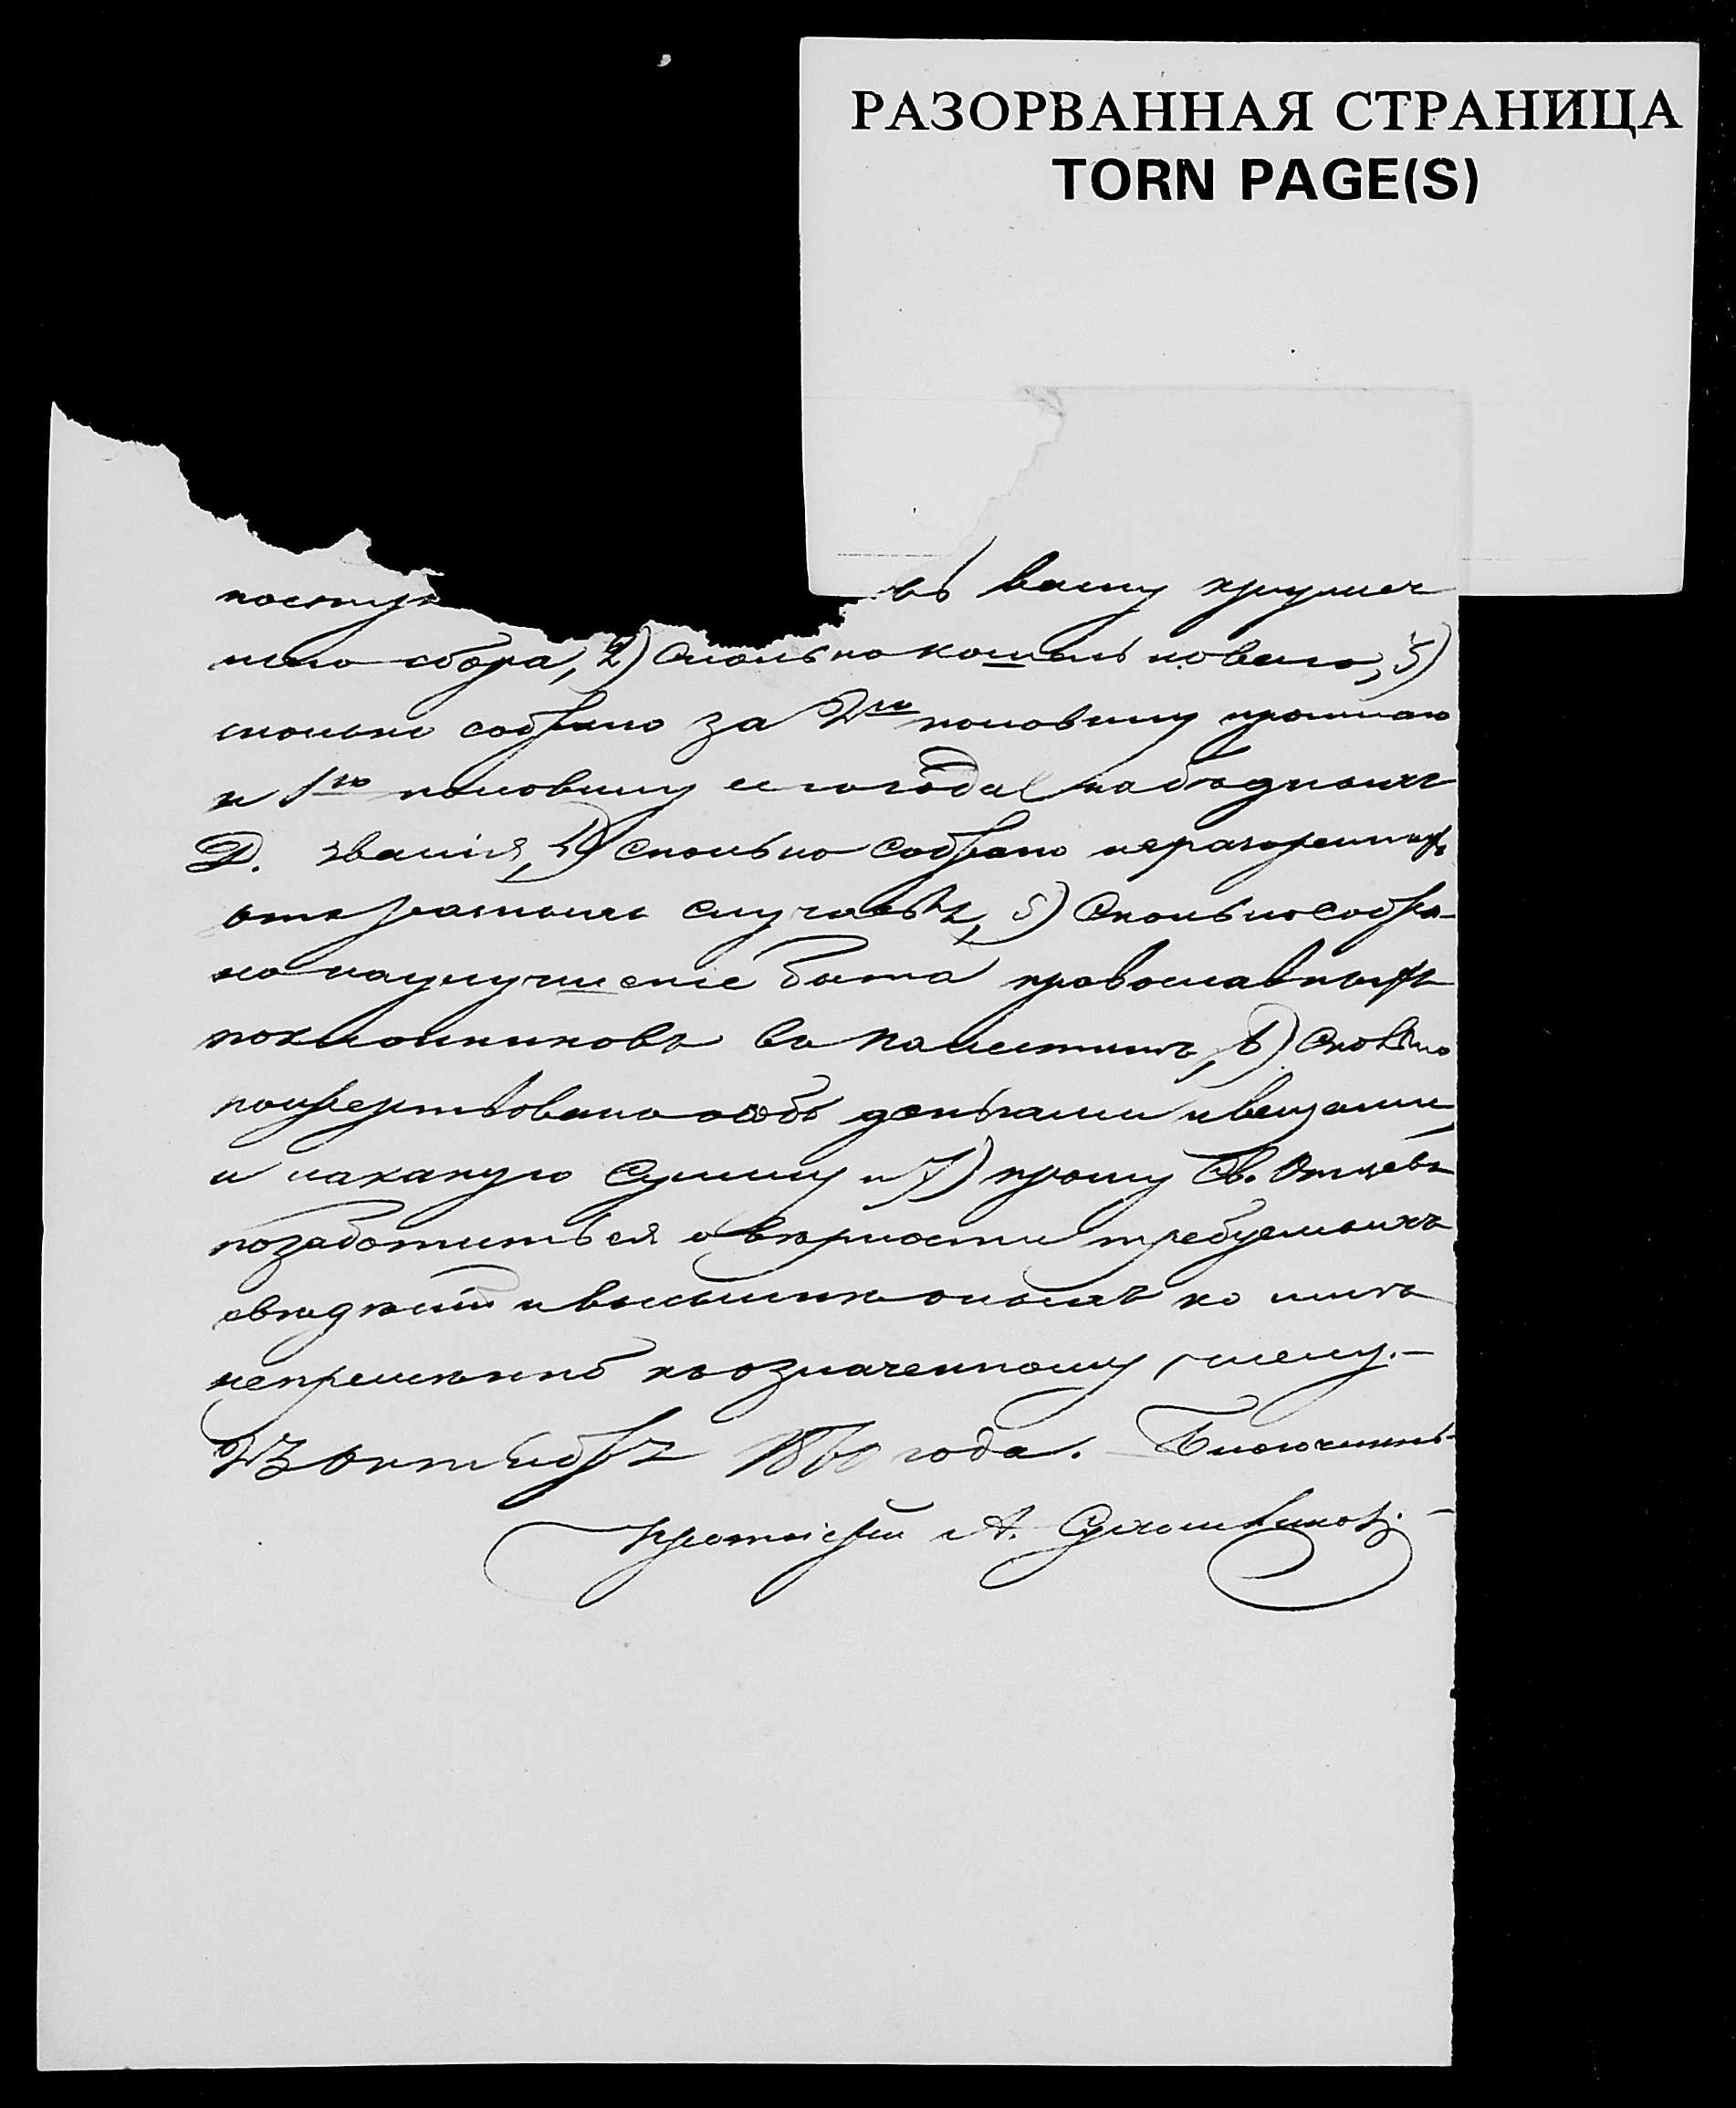 РАЗОРВАННАЯ СТРАНИЦА
TORN PAGE(S)
поступ въ вашу кружеч
наго сбора, 2) Сколько кошельковаго, 3)
сколько собрано за 2ю половину прошлаго
и 1ю половину сего года на бѣдныхъ
Д. званія, 4) Сколько собрано на разоренныхъ
отъ разныхъ случаевъ, 5) Сколько собра-
но на улучшеніе быта православныхъ
поклонниковъ въ Палестинѣ, 6) Сколько
пожертвовано особо деньгами и вещами
и на какую Сумму и 7) прошу Св. Отцевъ
позаботиться о вѣрности требуемыхъ
свѣдѣній и высылкѣ оныхъ ко мнѣ
непремѣнно къ означенному числу.-
23 Октября года. Благочинн-
Протоіерей А.